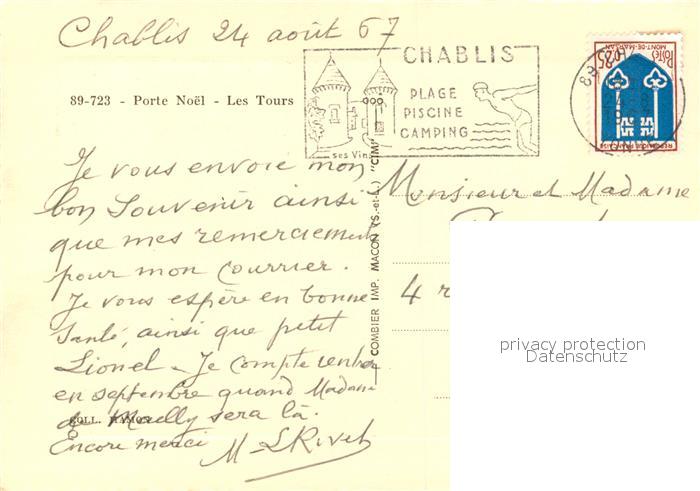 Chablis 24 août 67
CHABLIS
PLAGE
PISCINE
CAMPING
ses Vins
89-723 - Porte Noël - Les Tours
POSTES
0,25
MONT-DE-MARSAN
REPUBLIQUE FRANÇAISE
Je vous envoie mon
bon Souvenir ainsi
que mes remerciements
pour mon Courrier.
Je vous espère en bonne
Santé, ainsi que petit
Lionel - Je compte rentrer
en septembre quand Madame
de Mailly sera là.
COLL.
Encore merci
M LRivet
COMBIER IMP. MACON (S.-et-L.) "CIM"
Monsieur et Madame
4 r
privacy protection
Datenschutz